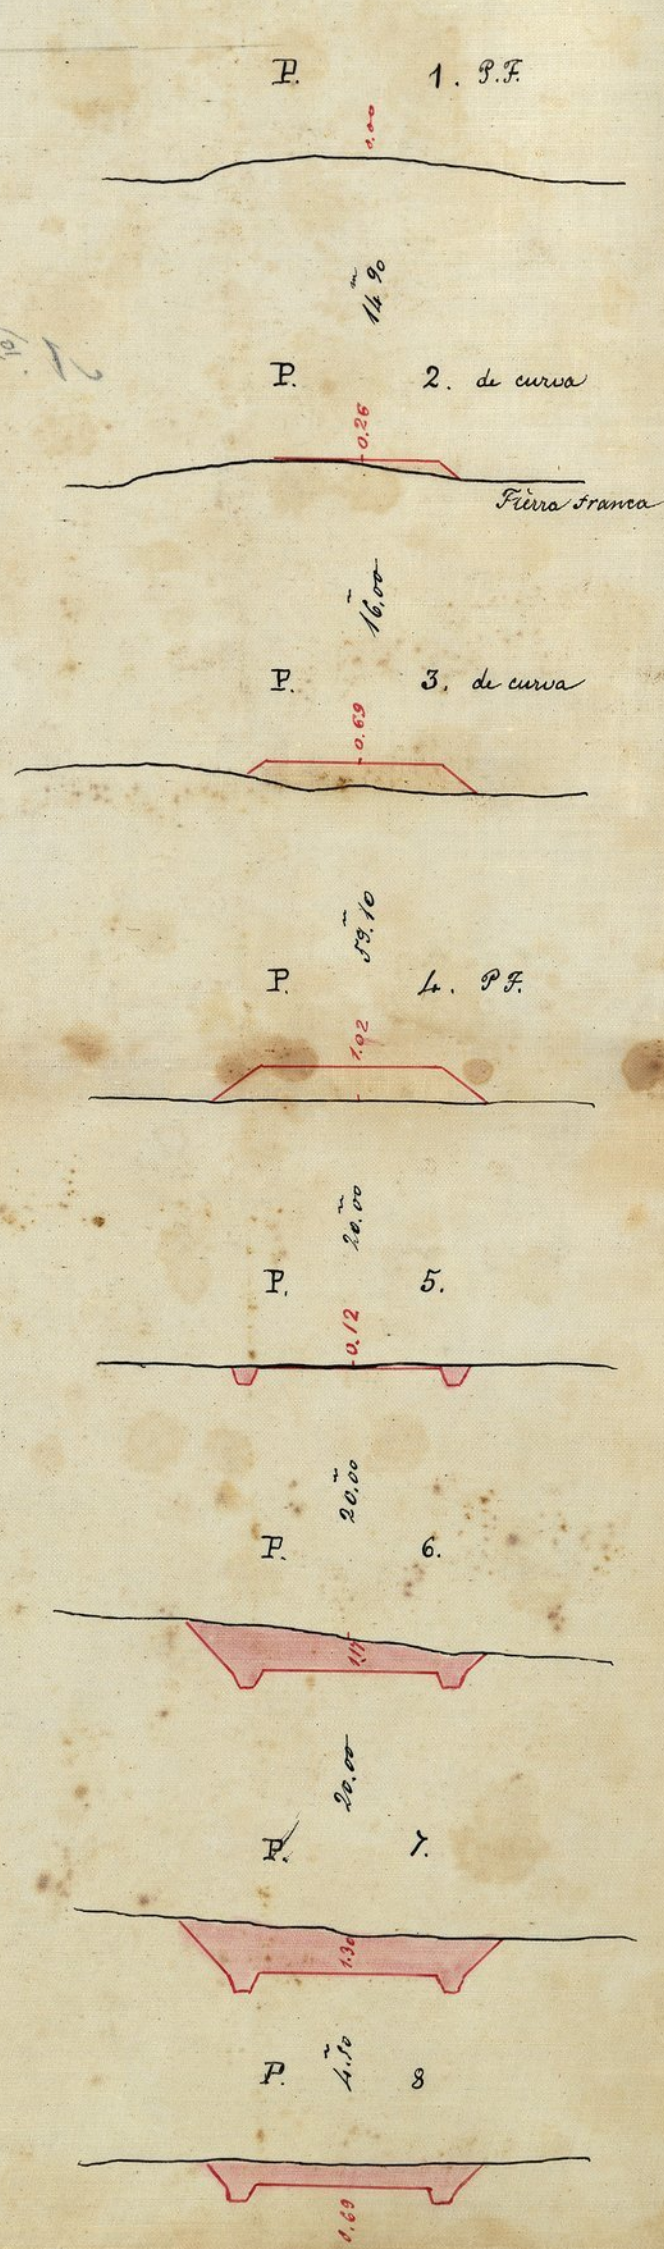 P. 1. P.F.
0.00
m
14.90
P. 2. de curva
0.26
Tierra franca
m
16,00
P. 3. de curva
0.69
m
59.10
P. 4. P.F.
1.02
m
20.00
P. 5.
0.12
m
20.00
P. 6.
1.17
20.00
P. 7.
1.30
m
4.50
P. 8
0.69